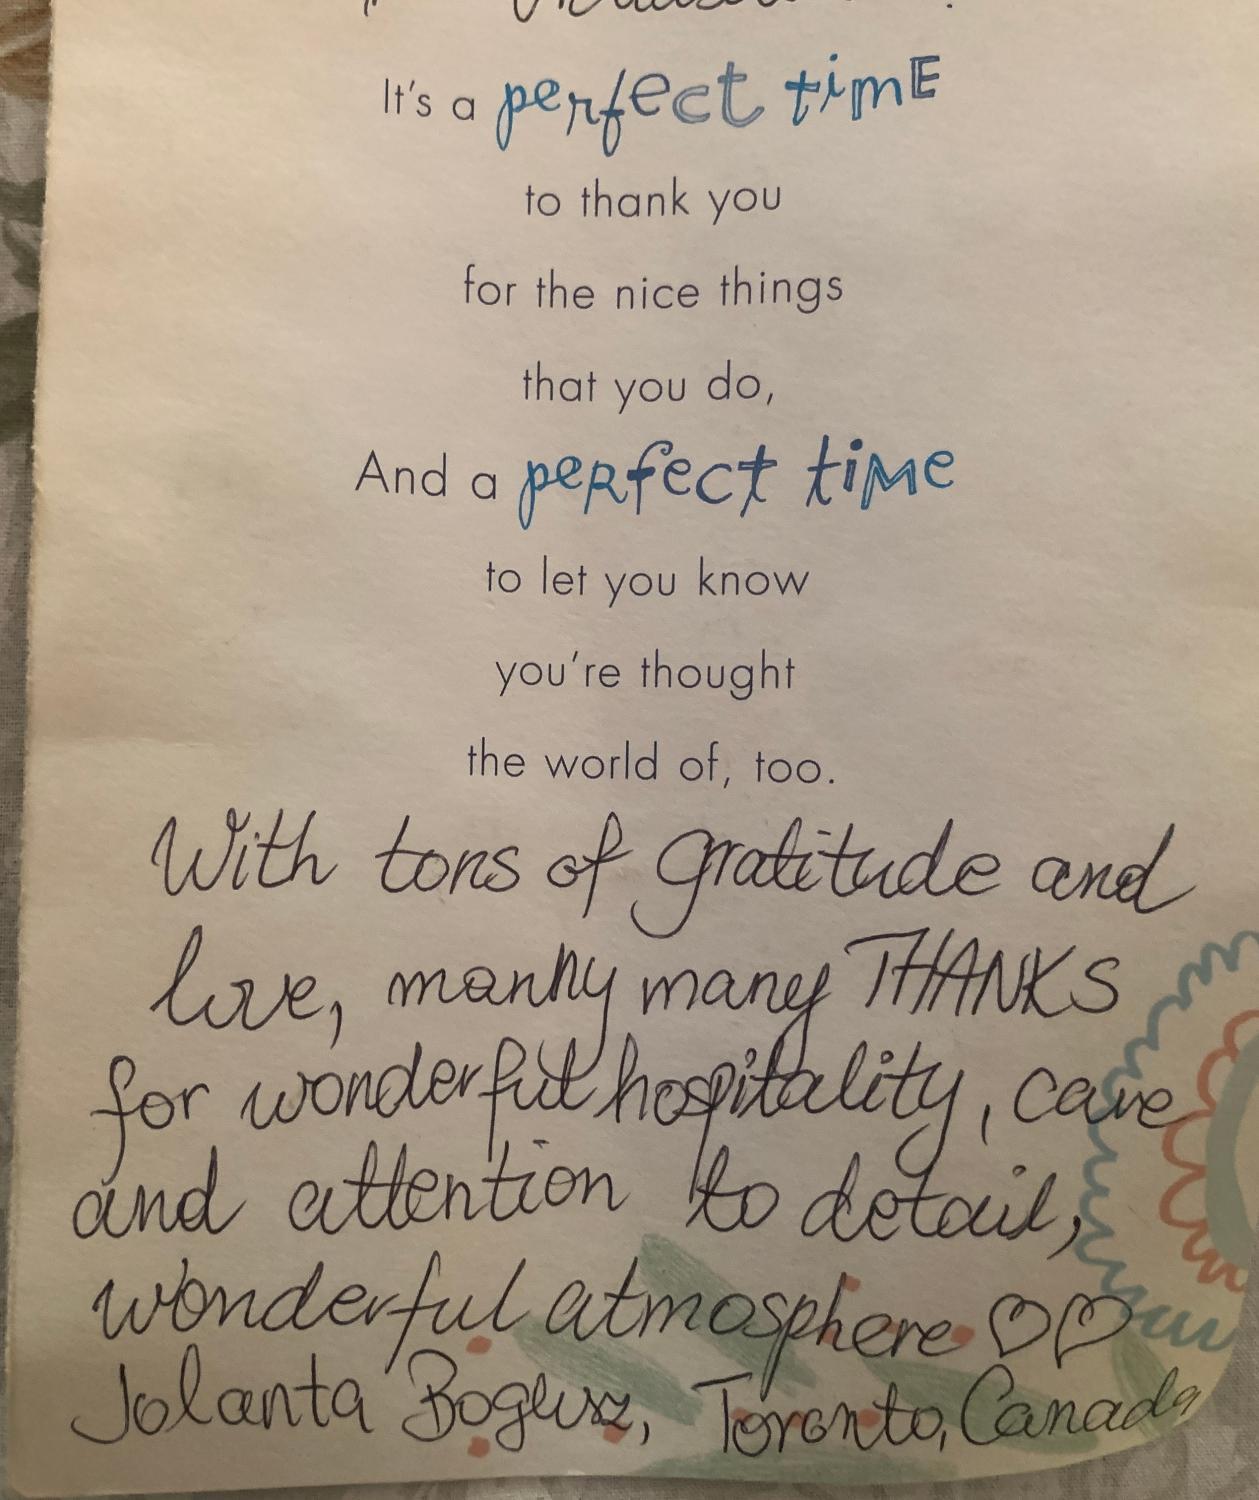 It's a perfect timE
to thank you
for the nice things
that you do,
And a peRfect tiMe
to let you know
you're thought
the world of, too.
With tons of gratitude and
love, manny many THANKS
for wonderful hospitality, care
and attention to detail,
wonderful atmosphere ♡♡
Jolanta Bogusz, Toronto, Canada